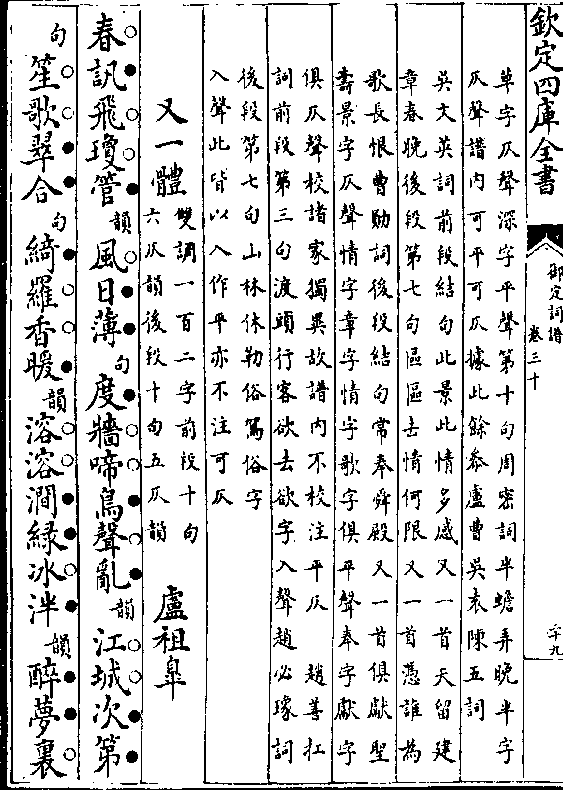 欽定四庫全書
御定詞譜
卷三十
二十九
草字仄聲深字平聲第十句周密詞半蟾弄晚半字
仄聲譜内可平可仄據此餘參盧曹吳袁陳五詞
吳文英詞前段結句此景此情多感又一首天留建
章春晚後段第七句區區去情何限又一首憑誰為
歌長恨曹勛詞後段結句常奉舜殿又一首俱獻聖
壽景字仄聲情字章字情字歌字俱平聲奉字獻字
俱仄聲校諸家獨異故譜内不校注平仄 趙善扛
詞前段第三句渡頭行客欲去欲字入聲趙必𤩪詞
後段第七句山林休勒俗駕俗字
入聲此皆以入作平亦不注可仄
又一體 雙調一百二字前段十句
六仄韻後段十句五仄韻 盧祖臯
春訊飛瓊管韻風日薄句度牆啼鳥聲亂韻江城次第
句笙歌翠合句綺羅香暖韻溶溶澗緑冰泮韻醉夢裏